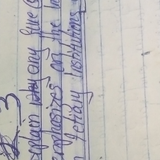 3
Explain why any five (
emphasizes on the
Tertiary Institutions